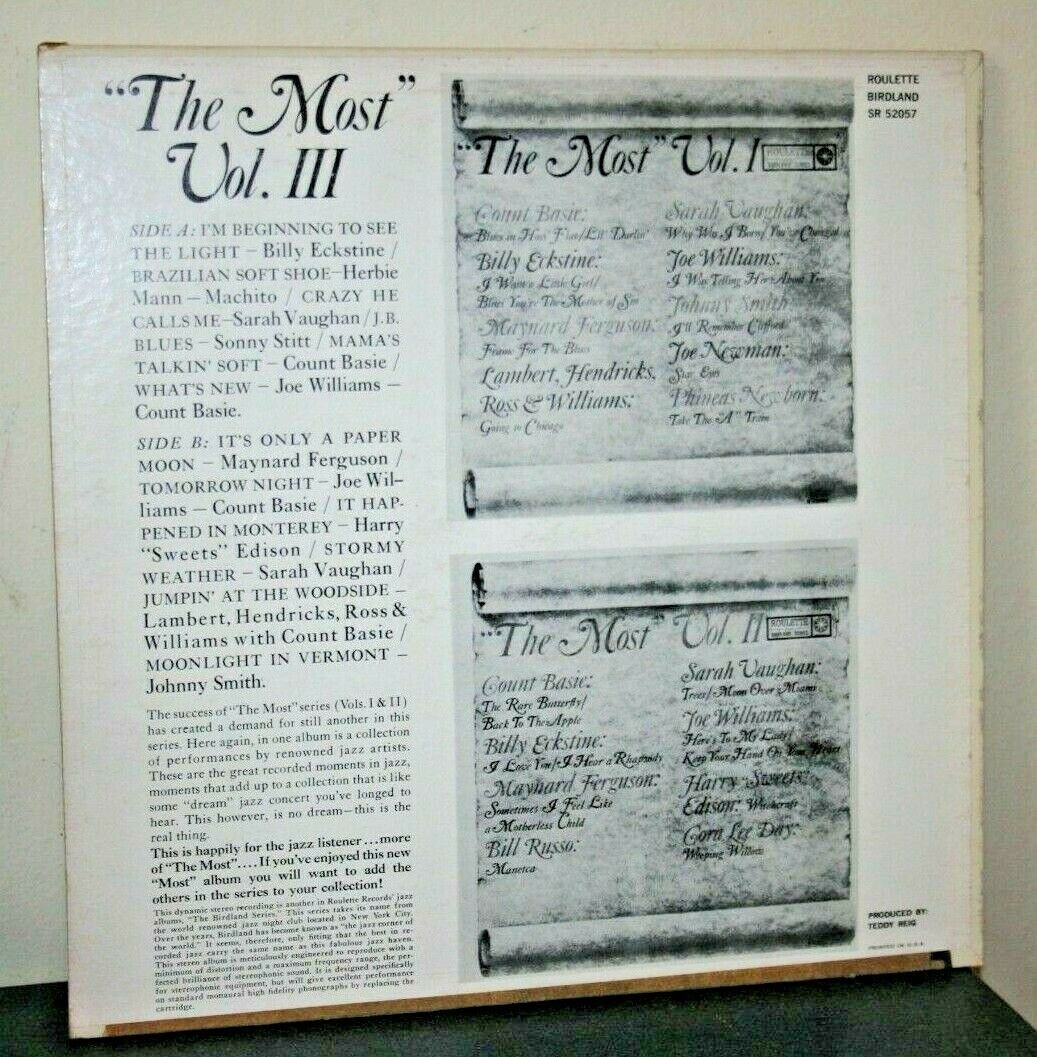 "The Most"
Vol. III
SIDE A: I'M BEGINNING TO SEE
THE LIGHT – Billy Eckstine /
BRAZILIAN SOFT SHOE–Herbie
Mann – Machito / CRAZY HE
CALLS ME–Sarah Vaughan / J.B.
BLUES – Sonny Stitt / MAMA'S
TALKIN' SOFT – Count Basie /
WHAT'S NEW – Joe Williams –
Count Basie.
SIDE B: IT'S ONLY A PAPER
MOON – Maynard Ferguson /
TOMORROW NIGHT – Joe Wil-
liams – Count Basie / IT HAP-
PENED IN MONTEREY – Harry
"Sweets" Edison / STORMY
WEATHER – Sarah Vaughan /
JUMPIN' AT THE WOODSIDE –
Lambert, Hendricks, Ross &
Williams with Count Basie /
MOONLIGHT IN VERMONT –
Johnny Smith.
The success of "The Most" series (Vols. I & II)
has created a demand for still another in this
series. Here again, in one album is a collection
of performances by renowned jazz artists.
These are the great recorded moments in jazz,
moments that add up to a collection that is like
some "dream" jazz concert you've longed to
hear. This however, is no dream—this is the
real thing.
This is happily for the jazz listener...more
of "The Most"....If you've enjoyed this new
"Most" album you will want to add the
others in the series to your collection!
This dynamic stereo recording is another in Roulette Records' jazz
albums, "The Birdland Series." This series takes its name from
the world renowned jazz night club located in New York City.
Over the years, Birdland has become known as "the jazz corner of
the world." It seems, therefore, only fitting that the best in re-
corded jazz carry the same name as this fabulous jazz haven.
This stereo album is meticulously engineered to reproduce with a
minimum of distortion and a maximum frequency range, the per-
fected brilliance of stereophonic sound. It is designed specifically
for stereophonic equipment, but will give excellent performance
on standard monaural high fidelity phonographs by replacing the
cartridge.
"The Most" Vol. I
ROULETTE
Count Basie:
Blues in Hoss' Flat/Lil' Darlin'
Billy Eckstine:
I Want a Little Girl/
Blues You're The Mother of Sin
Maynard Ferguson:
Frame For The Blues
Lambert, Hendricks,
Ross & Williams:
Going to Chicago
Sarah Vaughan:
Why Was I Born/You've Changed
Joe Williams:
I Was Telling Her About You
Johnny Smith
I'll Remember Clifford
Joe Newman:
Star Eyes
Phineas Newborn:
Take The "A" Train
"The Most" Vol. II
ROULETTE
Count Basie:
The Rare Butterfly/
Back To The Apple
Billy Eckstine:
I Love You/I Hear a Rhapsody
Maynard Ferguson:
Sometimes I Feel Like
a Motherless Child
Bill Russo:
Manteca
Sarah Vaughan:
Trees/Moon Over Miami
Joe Williams:
Here's To My Lady/
Keep Your Hand On Your Heart
Harry "Sweets"
Edison: Witchcraft
Cora Lee Day:
Weeping Willow
ROULETTE
BIRDLAND
SR 52057
PRODUCED BY:
TEDDY REIG
PRINTED IN U.S.A.